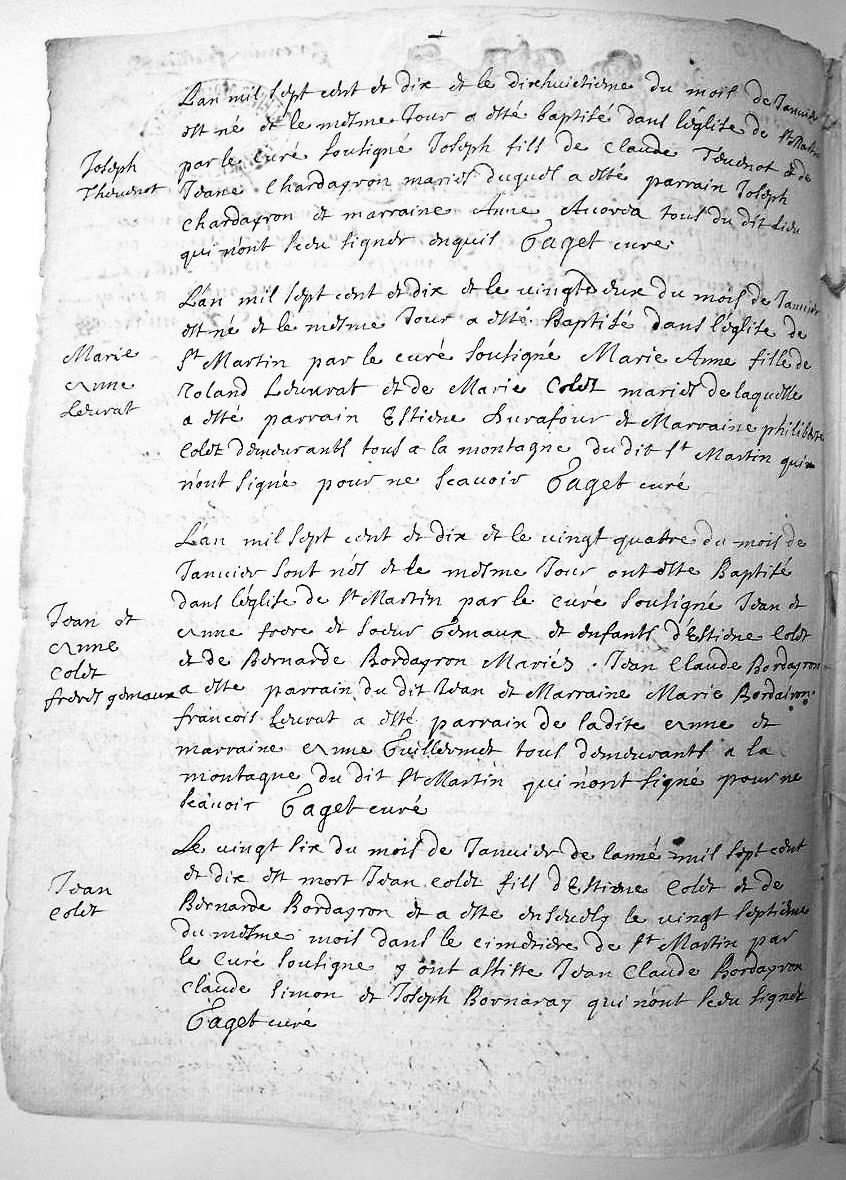 L'an mil sept cent et dix et le dixhuictieme du mois de Janvier
est né et le mesme Jour a esté baptisé dans l'église de St Martin
Joseph
Thevenot
par le curé soutigné Joseph fils de Claude Tevenot & de
Jeane Chardayron mariés duquel a esté parrain Joseph
Chardayron et marraine Anne tous du dit lieu
qui n'ont sceu signer enquis Gaget curé
L'an mil sept cent et dix et le vingtdeux du mois de Janvier
est né et le mesme Jour a esté Baptisé dans l'église de
Marie
Anne
Leuvrat
St Martin par le curé soutigné Marie Anne fille de
Roland Leuvrat et de Marie Colet mariés de laquelle
a esté parrain Estiene Durafour et Marraine philiberte
Colet demeurants tous a la montagne du dit St Martin qui
n'ont signé pour ne scavoir Gaget curé
L'an mil sept cent et dix et le vingt quatre du mois de
Janvier sont nés et le mesme Jour ont este Baptisé
Jean et
Anne
Colet
freres gemaux
dans l'église de St Martin par le curé soutigné Jean et
Anne frere et soeur Gemaux et enfants d'Estiene Colet
et de Bernarde Bordayron Mariés . Jean Claude Bordayron
a este parrain du dit Jean et Marraine Marie Bordairon
francois Leuvrat a esté parrain de ladite Anne et
marraine Anne Guillermet tous demeurants a la
montagne du dit St Martin qui n'ont signé pour ne
scavoir Gaget curé
Le vingt six du mois de Janvier de lanné mil sept cent
Jean
Colet
et dix est mort Jean Colet fils d'Estiene Colet et de
Bernarde Bordayron et a este ensevely le vingt septieme
du mesme mois dans le cimetiere de St Martin par
le Curé soutigne y ont assiste Jean Claude Bordayron
Claude Simon et Joseph Bornaray qui n'ont sceu signer
Gaget curé